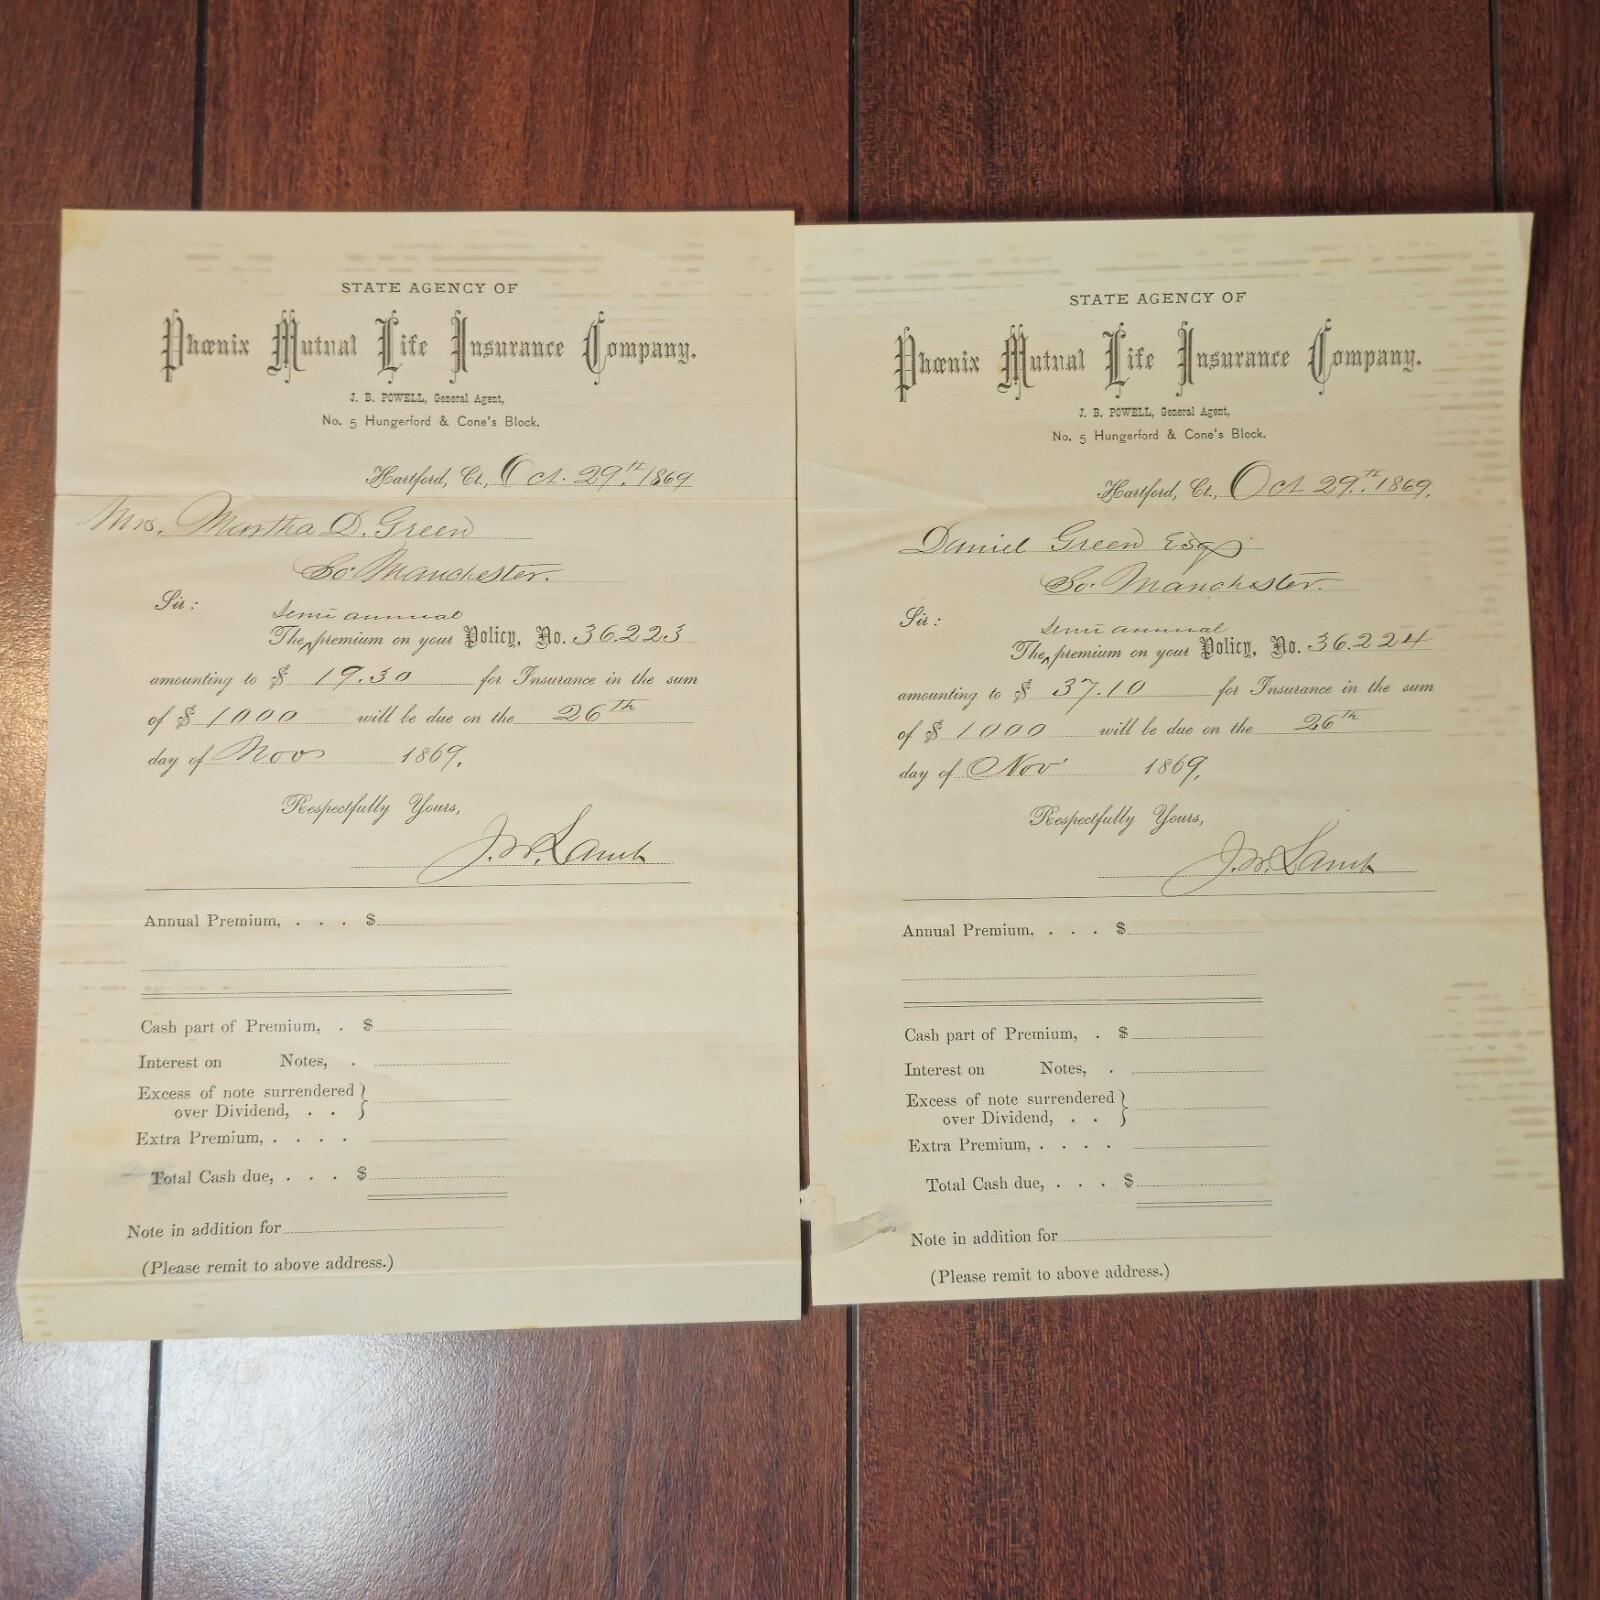 STATE AGENCY OF
Phœnix Mutual Life Insurance Company.
J. B. POWELL, General Agent,
No. 5 Hungerford & Cone's Block.
Hartford, Ct., Oct. 29th. 1869
Mrs. Martha D. Green
So. Manchester.
Sir:
semi annual
The ‸ premium on your Policy, No. 36.223
amounting to $ 19.30 for Insurance in the sum
of $ 1000 will be due on the 26th
day of Nov 1869.
Respectfully Yours,
J. W. Lamb
Annual Premium, . . . $
Cash part of Premium, . $
Interest on Notes, .
Excess of note surrendered }
over Dividend, . .
Extra Premium, . . . .
Total Cash due, . . . $
Note in addition for
(Please remit to above address.)
STATE AGENCY OF
Phœnix Mutual Life Insurance Company.
J. B. POWELL, General Agent,
No. 5 Hungerford & Cone's Block.
Hartford, Ct., Oct 29th. 1869.
Daniel Green Esq
So. Manchester.
Sir:
semi annual
The ‸ premium on your Policy, No. 36.224
amounting to $ 37.10 for Insurance in the sum
of $ 1000 will be due on the 26th
day of Nov 1869.
Respectfully Yours,
J. W. Lamb
Annual Premium, . . . $
Cash part of Premium, . $
Interest on Notes, .
Excess of note surrendered }
over Dividend, . .
Extra Premium, . . . .
Total Cash due, . . . $
Note in addition for
(Please remit to above address.)